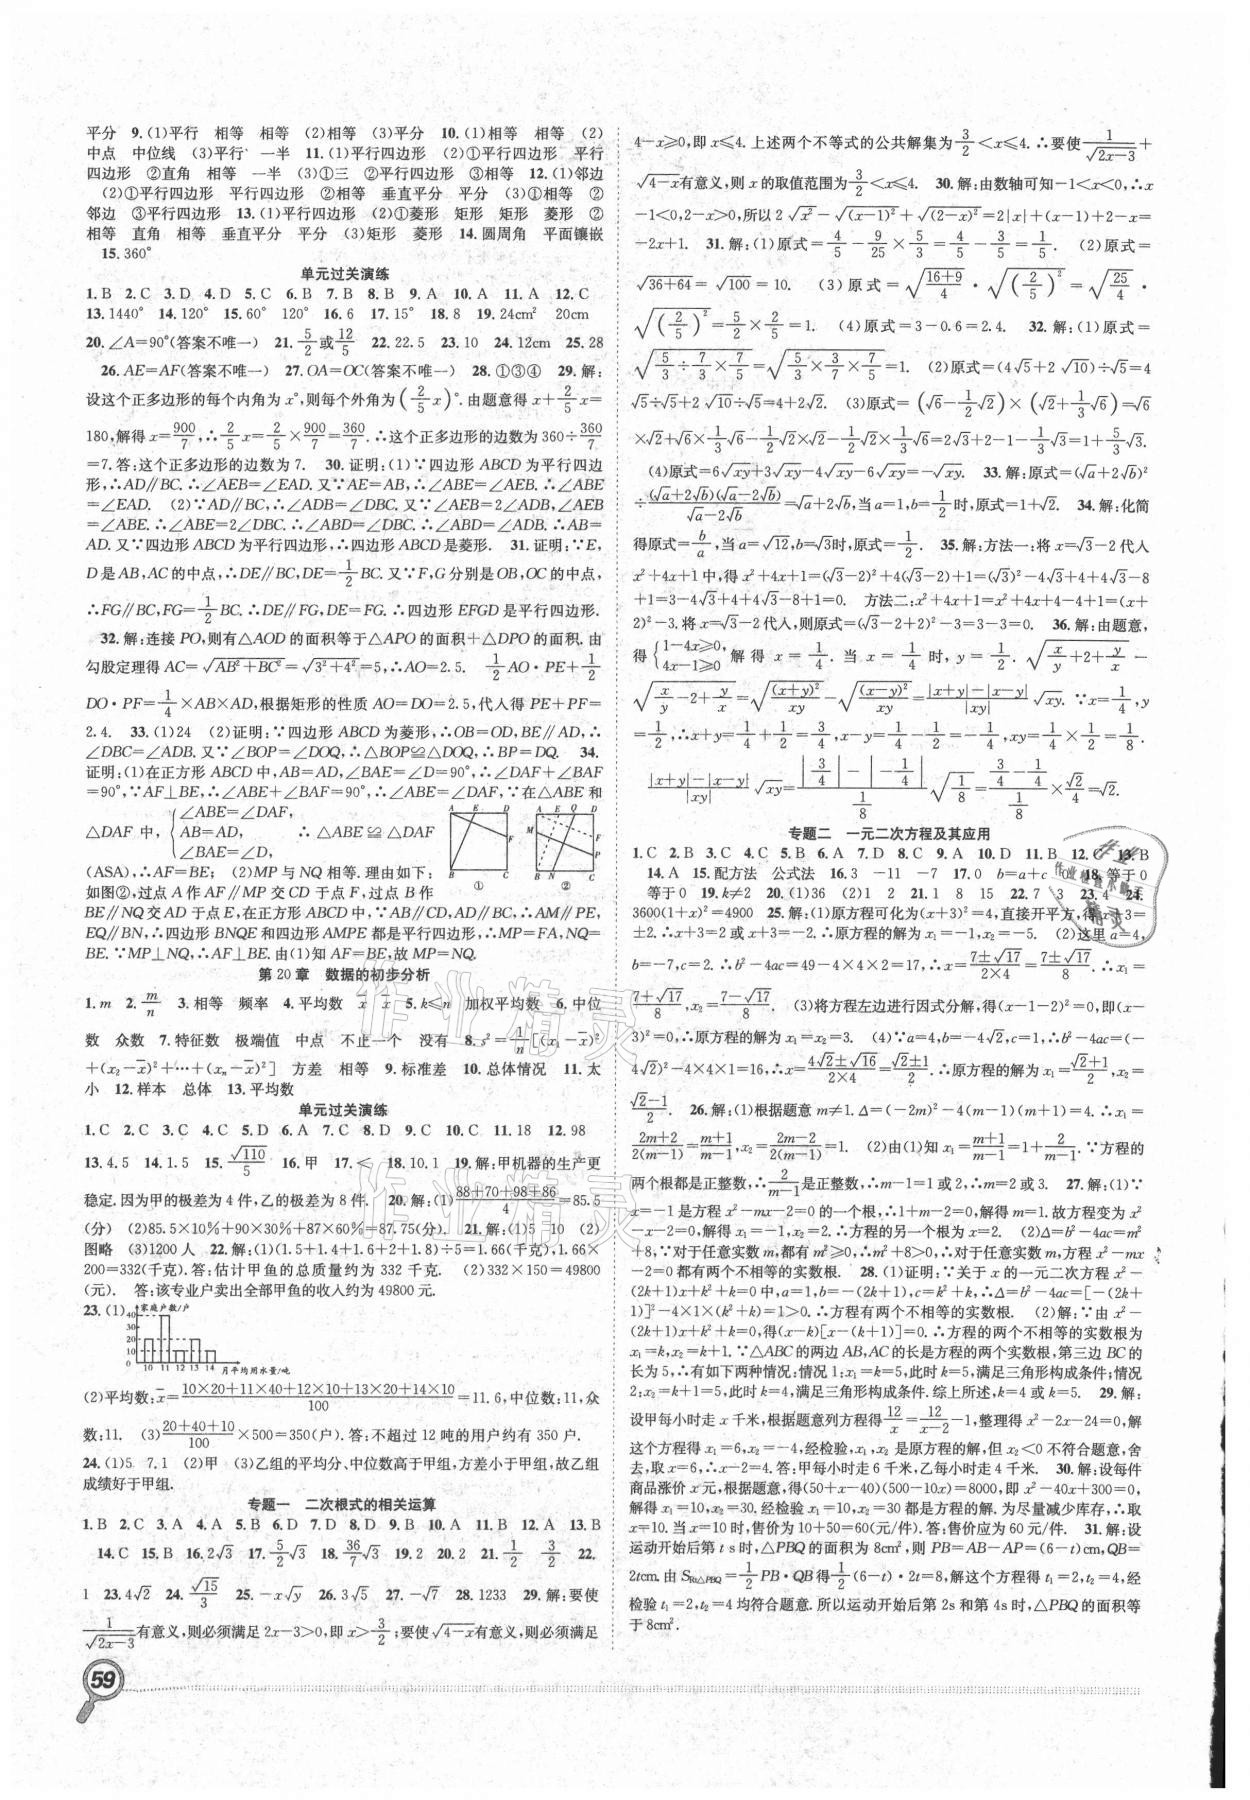 平分 9.(1)平行 相等 相等 (2)相等 (3)平分 10.(1)相等 相等 (2)
中点 中位线 (3)平行 一半 11.(1)平行四边形 (2)①平行四边形 平行
四边形 ②直角 相等 一半 (3)①三 ②平行四边形 ③相等 12.(1)邻边
(2)①平行四边形 平行四边形 ②相等 垂直平分 平分 (3)①相等 ②
邻边 ③平行四边形 13.(1)平行四边形 (2)①菱形 矩形 矩形 菱形 ②
相等 直角 相等 垂直平分 平分 (3)矩形 菱形 14.圆周角 平面镶嵌
15.360°
单元过关演练
1.B 2.C 3.D 4.D 5.C 6.B 7.B 8.B 9.A 10.A 11.A 12.C
13.1440° 14.120° 15.60° 120° 16.6 17.15° 18.8 19.24cm² 20cm
20.∠A=90°(答案不唯一) 21.5/2或12/5 22.22.5 23.10 24.12cm 25.28
26.AE=AF(答案不唯一) 27.OA=OC(答案不唯一) 28.①③④ 29.解:
设这个正多边形的每个内角为x°,则每个外角为(2/5 x)°.由题意得x+2/5 x=
180,解得x=900/7,∴2/5 x=2/5×900/7=360/7.∴这个正多边形的边数为360÷360/7
=7.答:这个正多边形的边数为7. 30.证明:(1)∵四边形ABCD为平行四边
形,∴AD∥BC.∴∠AEB=∠EAD.又∵AE=AB,∴∠ABE=∠AEB.∴∠ABE
=∠EAD. (2)∵AD∥BC,∴∠ADB=∠DBC.又∵∠AEB=2∠ADB,∠AEB
=∠ABE.∴∠ABE=2∠DBC.∴∠ABD=∠DBC.∴∠ABD=∠ADB.∴AB=
AD.又∵四边形ABCD为平行四边形,∴四边形ABCD是菱形. 31.证明:∵E,
D是AB,AC的中点,∴DE∥BC,DE=1/2 BC.又∵F,G分别是OB,OC的中点,
∴FG∥BC,FG=1/2 BC.∴DE∥FG,DE=FG.∴四边形EFGD是平行四边形.
32.解:连接PO,则有△AOD的面积等于△APO的面积+△DPO的面积.由
勾股定理得AC=√(AB²+BC²)=√(3²+4²)=5,∴AO=2.5. 1/2 AO·PE+1/2
DO·PF=1/4×AB×AD,根据矩形的性质AO=DO=2.5,代入得PE+PF=
2.4. 33.(1)24 (2)证明:∵四边形ABCD为菱形,∴OB=OD,BE∥AD,∴
∠DBC=∠ADB.又∵∠BOP=∠DOQ,∴△BOP≌△DOQ,∴BP=DQ. 34.
证明:(1)在正方形ABCD中,AB=AD,∠BAE=∠D=90°,∴∠DAF+∠BAF
=90°,∵AF⊥BE,∴∠ABE+∠BAF=90°,∴∠ABE=∠DAF,∵在△ABE和
△DAF中,{∠ABE=∠DAF, AB=AD, ∠BAE=∠D, ∴△ABE≌△DAF
(ASA),∴AF=BE; (2)MP与NQ相等.理由如下:
如图②,过点A作AF∥MP交CD于点F,过点B作
BE∥NQ交AD于点E,在正方形ABCD中,∵AB∥CD,AD∥BC,∴AM∥PE,
EQ∥BN,∴四边形BNQE和四边形AMPE都是平行四边形,∴MP=FA,NQ=
BE.∵MP⊥NQ,∴AF⊥BE.由(1)知AF=BE,故MP=NQ.
A E D F B C ①
A E Q D F M P B N C ②
第20章 数据的初步分析
1.m 2.m/n 3.相等 频率 4.平均数 x̄ x̄ 5.k≤n 加权平均数 6.中位
数 众数 7.特征数 极端值 中点 不止一个 没有 8.s²=1/n[(x₁−x̄)²
+(x₂−x̄)²+…+(xₙ−x̄)²] 方差 相等 9.标准差 10.总体情况 11.太
小 12.样本 总体 13.平均数
单元过关演练
1.C 2.C 3.C 4.C 5.D 6.A 7.C 8.D 9.C 10.C 11.18 12.98
13.4.5 14.1.5 15.√110/5 16.甲 17.< 18.10.1 19.解:甲机器的生产更
稳定.因为甲的极差为4件,乙的极差为8件. 20.解:(1)(88+70+98+86)/4=85.5
(分) (2)85.5×10%+90×30%+87×60%=87.75(分). 21.解:(1)5 10 (2)
图略 (3)1200人 22.解:(1)(1.5+1.4+1.6+2+1.8)÷5=1.66(千克),1.66×
200=332(千克).答:估计甲鱼的总质量约为332千克. (2)332×150=49800
(元). 答:该专业户卖出全部甲鱼的收入约为49800元.
23.(1)
家庭户数/户
40
30
20
10
0
10 11 12 13 14 月平均用水量/吨
(2)平均数:x̄=(10×20+11×40+12×10+13×20+14×10)/100=11.6,中位数:11,众
数:11. (3)(20+40+10)/100×500=350(户).答:不超过12吨的用户约有350户.
24.(1)5 7.1 (2)甲 (3)乙组的平均分、中位数高于甲组,方差小于甲组,故乙组
成绩好于甲组.
专题一 二次根式的相关运算
1.B 2.C 3.A 4.A 5.B 6.D 7.D 8.D 9.B 10.A 11.B 12.A 13.B
14.C 15.B 16.2√3 17.5/2√3 18.36/7√3 19.2 20.2 21.1/2 3/2 22.
1 23.4√2 24.√15/3 25.−x√y 26.3√5 27.−√7 28.1233 29.解:要使
1/√(2x−3)有意义,则必须满足2x−3>0,即x>3/2;要使√(4−x)有意义,则必须满足
59
4−x≥0,即x≤4.上述两个不等式的公共解集为3/2<x≤4.∴要使1/√(2x−3)+
√(4−x)有意义,则x的取值范围为3/2<x≤4. 30.解:由数轴可知−1<x<0,∴x
−1<0,2−x>0,所以2√x²−√(x−1)²+√(2−x)²=2|x|+(x−1)+2−x=
−2x+1. 31.解:(1)原式=4/5−9/25×5/3=4/5−3/5=1/5. (2)原式=
√(36+64)=√100=10. (3)原式=√((16+9)/4)·√(2/5)²=√(25/4)·
√(2/5)²=5/2×2/5=1. (4)原式=3−0.6=2.4. 32.解:(1)原式=
√(5/3÷7/3×7/5)=√(5/3×3/7×7/5)=1. (2)原式=(4√5+2√10)÷√5=4
√5÷√5+2√10÷√5=4+2√2. (3)原式=(√6−1/2√2)×(√2+1/3√6)=√6
×√2+√6×1/3√6−1/2√2×√2−1/2√2×1/3√6=2√3+2−1−1/3√3=1+5/3√3.
(4)原式=6√xy+3√xy−4√xy−6√xy=−√xy. 33.解:原式=(√a+2√b)²
÷(√a+2√b)(√a−2√b)/(√a−2√b)=√a+2√b,当a=1,b=1/2时,原式=1+√2. 34.解:化简
得原式=b/a,当a=√12,b=√3时,原式=1/2. 35.解:方法一:将x=√3−2代人
x²+4x+1中,得x²+4x+1=(√3−2)²+4(√3−2)+1=(√3)²−4√3+4+4√3−8
+1=3−4√3+4+4√3−8+1=0. 方法二:x²+4x+1=x²+4x+4−4+1=(x+
2)²−3.将x=√3−2代人,则原式=(√3−2+2)²−3=3−3=0. 36.解:由题意,
得{1−4x≥0, 4x−1≥0 解得x=1/4.当x=1/4时,y=1/2.√(x/y+2+y/x)−
√(x/y−2+y/x)=√((x+y)²/xy)−√((x−y)²/xy)=(|x+y|−|x−y|)/|xy| √xy.∵x=1/4,y
=1/2,∴x+y=1/4+1/2=3/4,x−y=1/4−1/2=−1/4,xy=1/4×1/2=1/8.
(|x+y|−|x−y|)/|xy| √xy=(|3/4|−|−1/4|)/(1/8) √(1/8)=(3/4−1/4)/(1/8)×√2/4=√2.
专题二 一元二次方程及其应用
1.C 2.B 3.C 4.C 5.B 6.A 7.D 8.C 9.A 10.D 11.B 12.C 13.B
14.A 15.配方法 公式法 16.3 −11 −7 17.0 b=a+c 0 18.等于0
等于0 19.k≠2 20.(1)36 (2)1 2 21.1 8 15 22.7 3 23.4 24.
3600(1+x)²=4900 25.解:(1)原方程可化为(x+3)²=4,直接开平方,得x+3=
±2.∴x+3=2或x+3=−2.∴原方程的解为x₁=−1,x₂=−5. (2)这里a=4,
b=−7,c=2.∴b²−4ac=(−7)²−4×4×2=17.∴x=(7±√17)/(2×4)=(7±√17)/8.∴x₁=
(7+√17)/8,x₂=(7−√17)/8. (3)将方程左边进行因式分解,得(x−1−2)²=0,即(x−
3)²=0,∴原方程的解为x₁=x₂=3. (4)∵a=4,b=−4√2,c=1,∴b²−4ac=(−
4√2)²−4×4×1=16,∴x=(4√2±√16)/(2×4)=(√2±1)/2.∴原方程的解为x₁=(√2+1)/2,x₂=
(√2−1)/2. 26.解:(1)根据题意m≠1.Δ=(−2m)²−4(m−1)(m+1)=4.∴x₁=
(2m+2)/2(m−1)=(m+1)/(m−1),x₂=(2m−2)/2(m−1)=1. (2)由(1)知x₁=(m+1)/(m−1)=1+2/(m−1).∵方程的
两个根都是正整数,∴2/(m−1)是正整数,∴m−1=1或2,∴m=2或3. 27.解:(1)∵
x=−1是方程x²−mx−2=0的一个根,∴1+m−2=0,解得m=1.故方程变为x²
−x−2=0,解得x₁=−1,x₂=2.∴方程的另一个根为x=2. (2)Δ=b²−4ac=m²
+8,∵对于任意实数m,都有m²≥0,∴m²+8>0,∴对于任意实数m,方程x²−mx
−2=0都有两个不相等的实数根. 28.(1)证明:∵关于x的一元二次方程x²−
(2k+1)x+k²+k=0中,a=1,b=−(2k+1),c=k²+k,∴Δ=b²−4ac=[−(2k+
1)]²−4×1×(k²+k)=1>0.∴方程有两个不相等的实数根. (2)解:∵由x²−
(2k+1)x+k²+k=0,得(x−k)[x−(k+1)]=0.∴方程的两个不相等的实数根为
x₁=k,x₂=k+1.∵△ABC的两边AB,AC的长是方程的两个实数根,第三边BC的
长为5,∴有如下两种情况:情况1:x₁=k=5,此时k=5,满足三角形构成条件;情况
2:x₂=k+1=5,此时k=4,满足三角形构成条件.综上所述,k=4或k=5. 29.解:
设甲每小时走x千米,根据题意列方程得12/x=12/(x−2)−1,整理得x²−2x−24=0,解
这个方程得x₁=6,x₂=−4,经检验,x₁,x₂是原方程的解,但x₂<0不符合题意,舍
去,取x=6,∴x−2=4.答:甲每小时走6千米,乙每小时走4千米. 30.解:设每件
商品涨价x元,根据题意,得(50+x−40)(500−10x)=8000,即x²−40x+300=0,
解得x₁=10,x₂=30.经检验x₁=10,x₂=30都是方程的解.为尽量减少库存,∴取
x=10.当x=10时,售价为10+50=60(元/件).答:售价应为60元/件. 31.解:设
运动开始后第t s时,△PBQ的面积为8cm²,则PB=AB−AP=(6−t)cm,QB=
2tcm.由S Rt△PBQ=1/2 PB·QB得1/2(6−t)·2t=8,解这个方程得t₁=2,t₂=4,经
检验t₁=2,t₂=4均符合题意.所以运动开始后第2s和第4s时,△PBQ的面积等
于8cm².
作业精灵
作业精灵
作业
作业检查小帮手
精灵